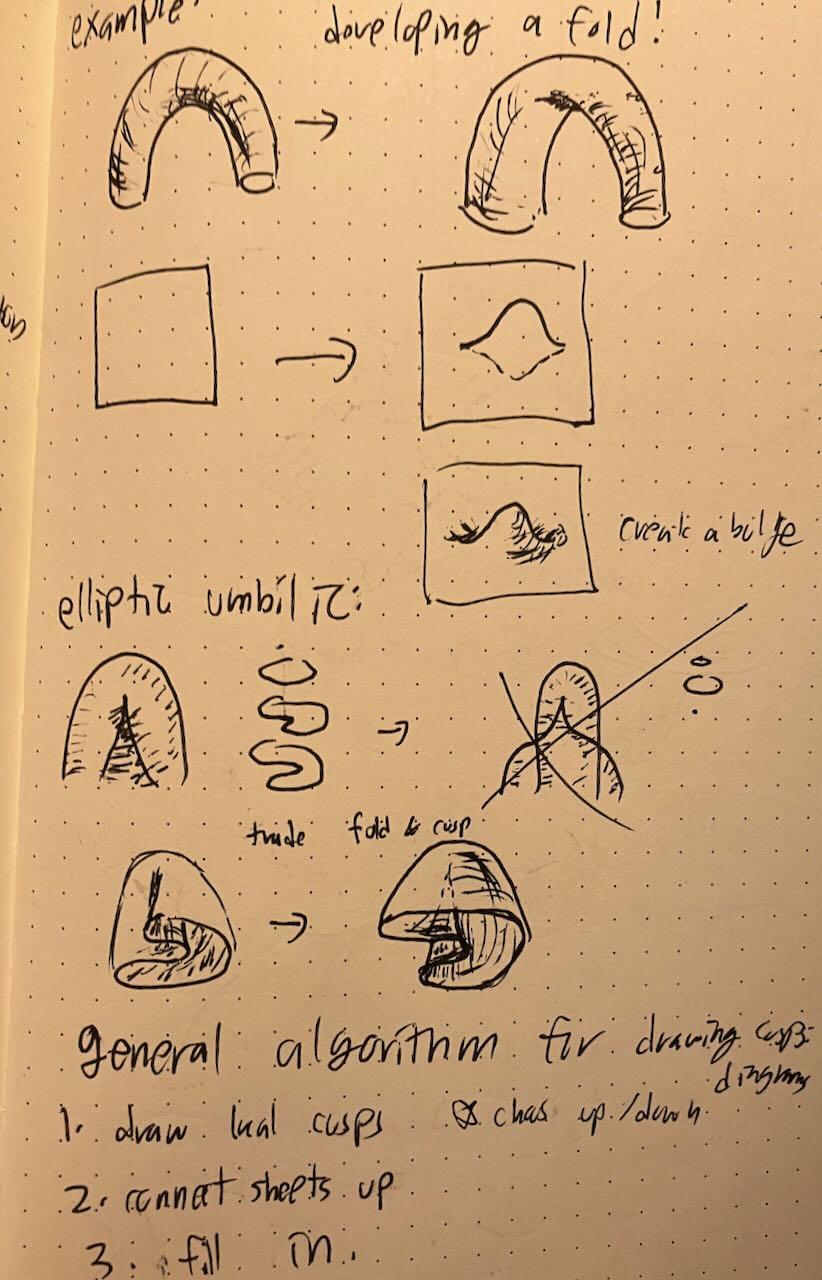 example:
developing a fold!
create a bulge
elliptic umbilic:
trade fold & cusp
general algorithm for drawing cusps
diagrams
1. draw local cusps up/down
2. connect sheets up
3. fill in.